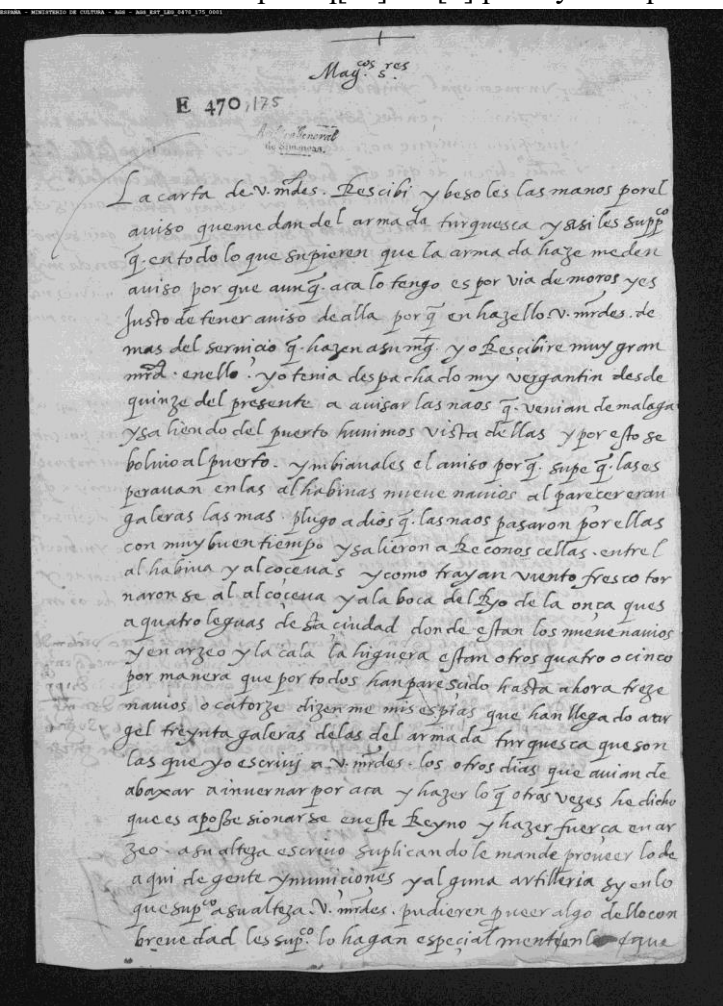 ESPAÑA - MINISTERIO DE CULTURA - AGS - AGS_EST_LEG_0470_175_0001
Mag.cos s.res
E 470,175
Archivo General
de Simancas
La carta de v. mrdes. Rescibi y beso les las manos por el
aviso que me dan del armada turquesca y asi les supp.co
q̄. en todo lo que supieren que la armada haze me den
aviso por que aunq̄. aca lo tengo es por via de moros y es
Justo de tener aviso de alla por q̄ en hazello v. mrdes. de
mas del servicio q̄. hazen a su mg. yo Rescibire muy gran
mrd. en ello. yo tenia despachado my vergantin desde
quinze del presente a avisar las naos q̄. venian de malaga
y saliendo del puerto huuimos vista dellas y por esto se
bolvio al puerto. ymbiavales el aviso porq̄. supe q̄. las es
peravan en las alhabinas nueve navios al parecer eran
galeras las mas. plugo a dios q̄. las naos pasaron por ellas
con muy buen tiempo y salieron a Reconoscellas. entrel
alhabiva y alcoçevas y como trayan viento fresco tor
naron se al alcoçeva y a la boca del Ryo de la onça ques
a quatro leguas desta ciudad donde estan los nueve navios
y en arzeo y la cala la higuera estan otros quatro o cinco
por manera que por todos han paresçido hasta ahora treze
navios o catorze dizen me mis espias que han llegado a ar
gel treynta galeras de las del armada turquesca que son
las que yo escrivi a v. mrdes. los otros dias que avian de
abaxar a invernar por aca y hazer lo q̄ otras vezes he dicho
que es aposse sionarse en este Reyno y hazer fuerça en ar
zeo. a su alteza escrivo suplicandole mande proveer lo de
aqui de gente y municiones y alguna artilleria sy en lo
que sup.co a su alteza. v. mrdes. pudieren pueer algo dello con
brevedad les sup.co lo hagan especialmente en lo que